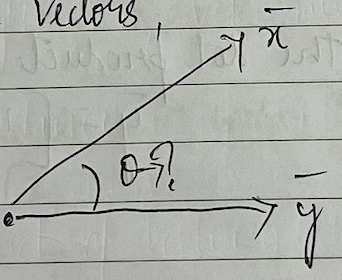 Vectors,
x̄
θ→?
ȳ